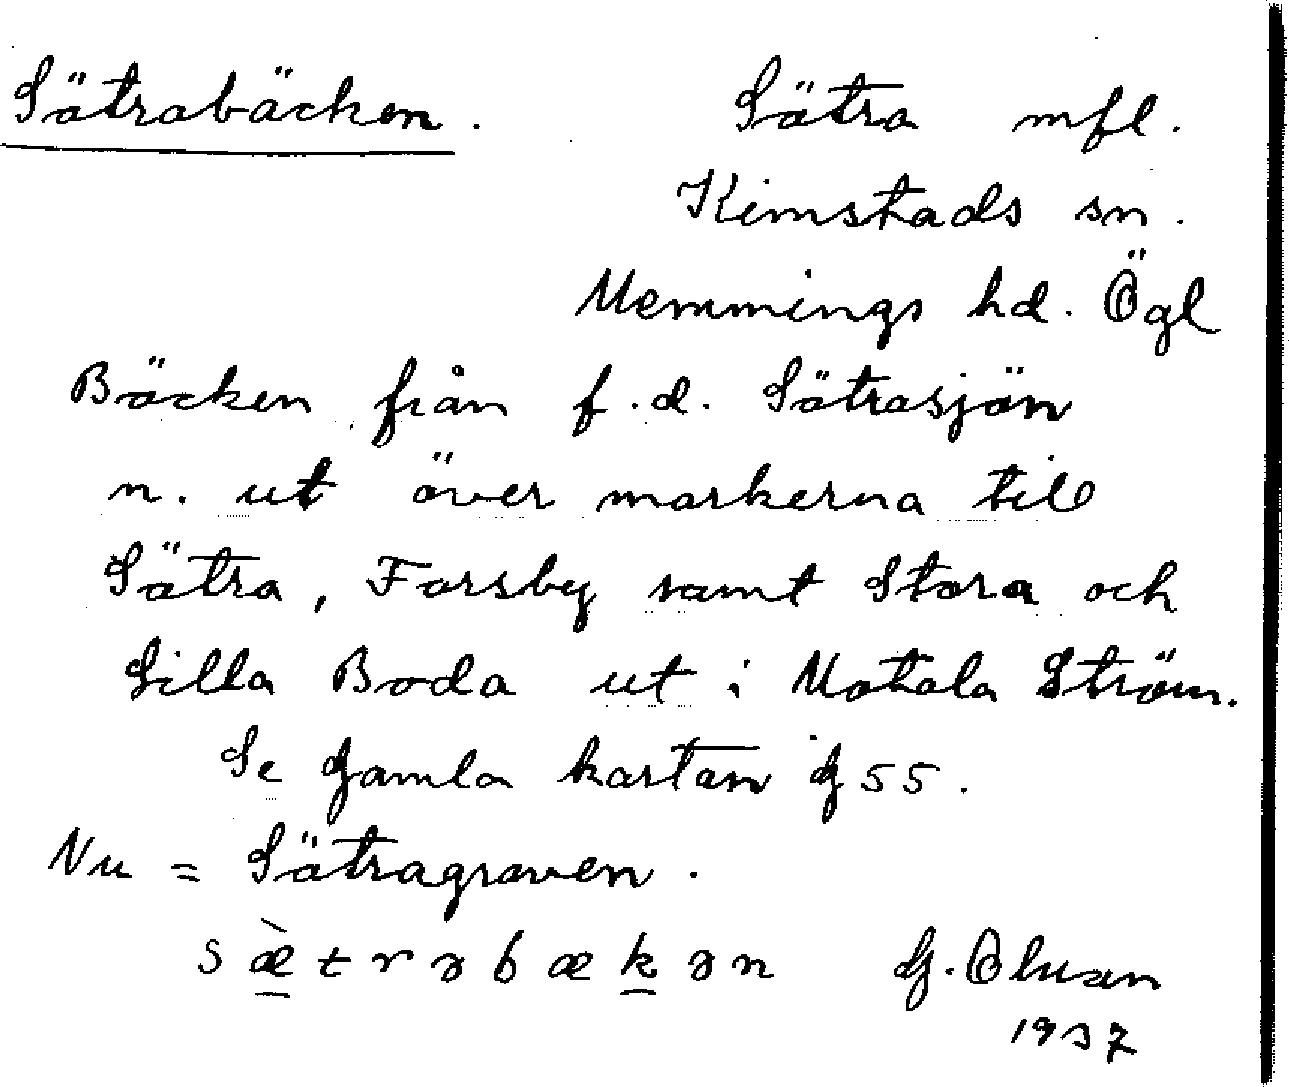 Sätrabäcken. Sätra mfl.
Kimstads sn.
Memmings hd. Ögl
Bäcken från f.d. Sätrasjön
n. ut över markerna till
Sätra, Forsby samt Stora och
Lilla Boda ut i Motala Ström.
Se Gamla kartan G 55.
Nu = Sätragraven.
sæ̀trəbækən G. Olsson
1937